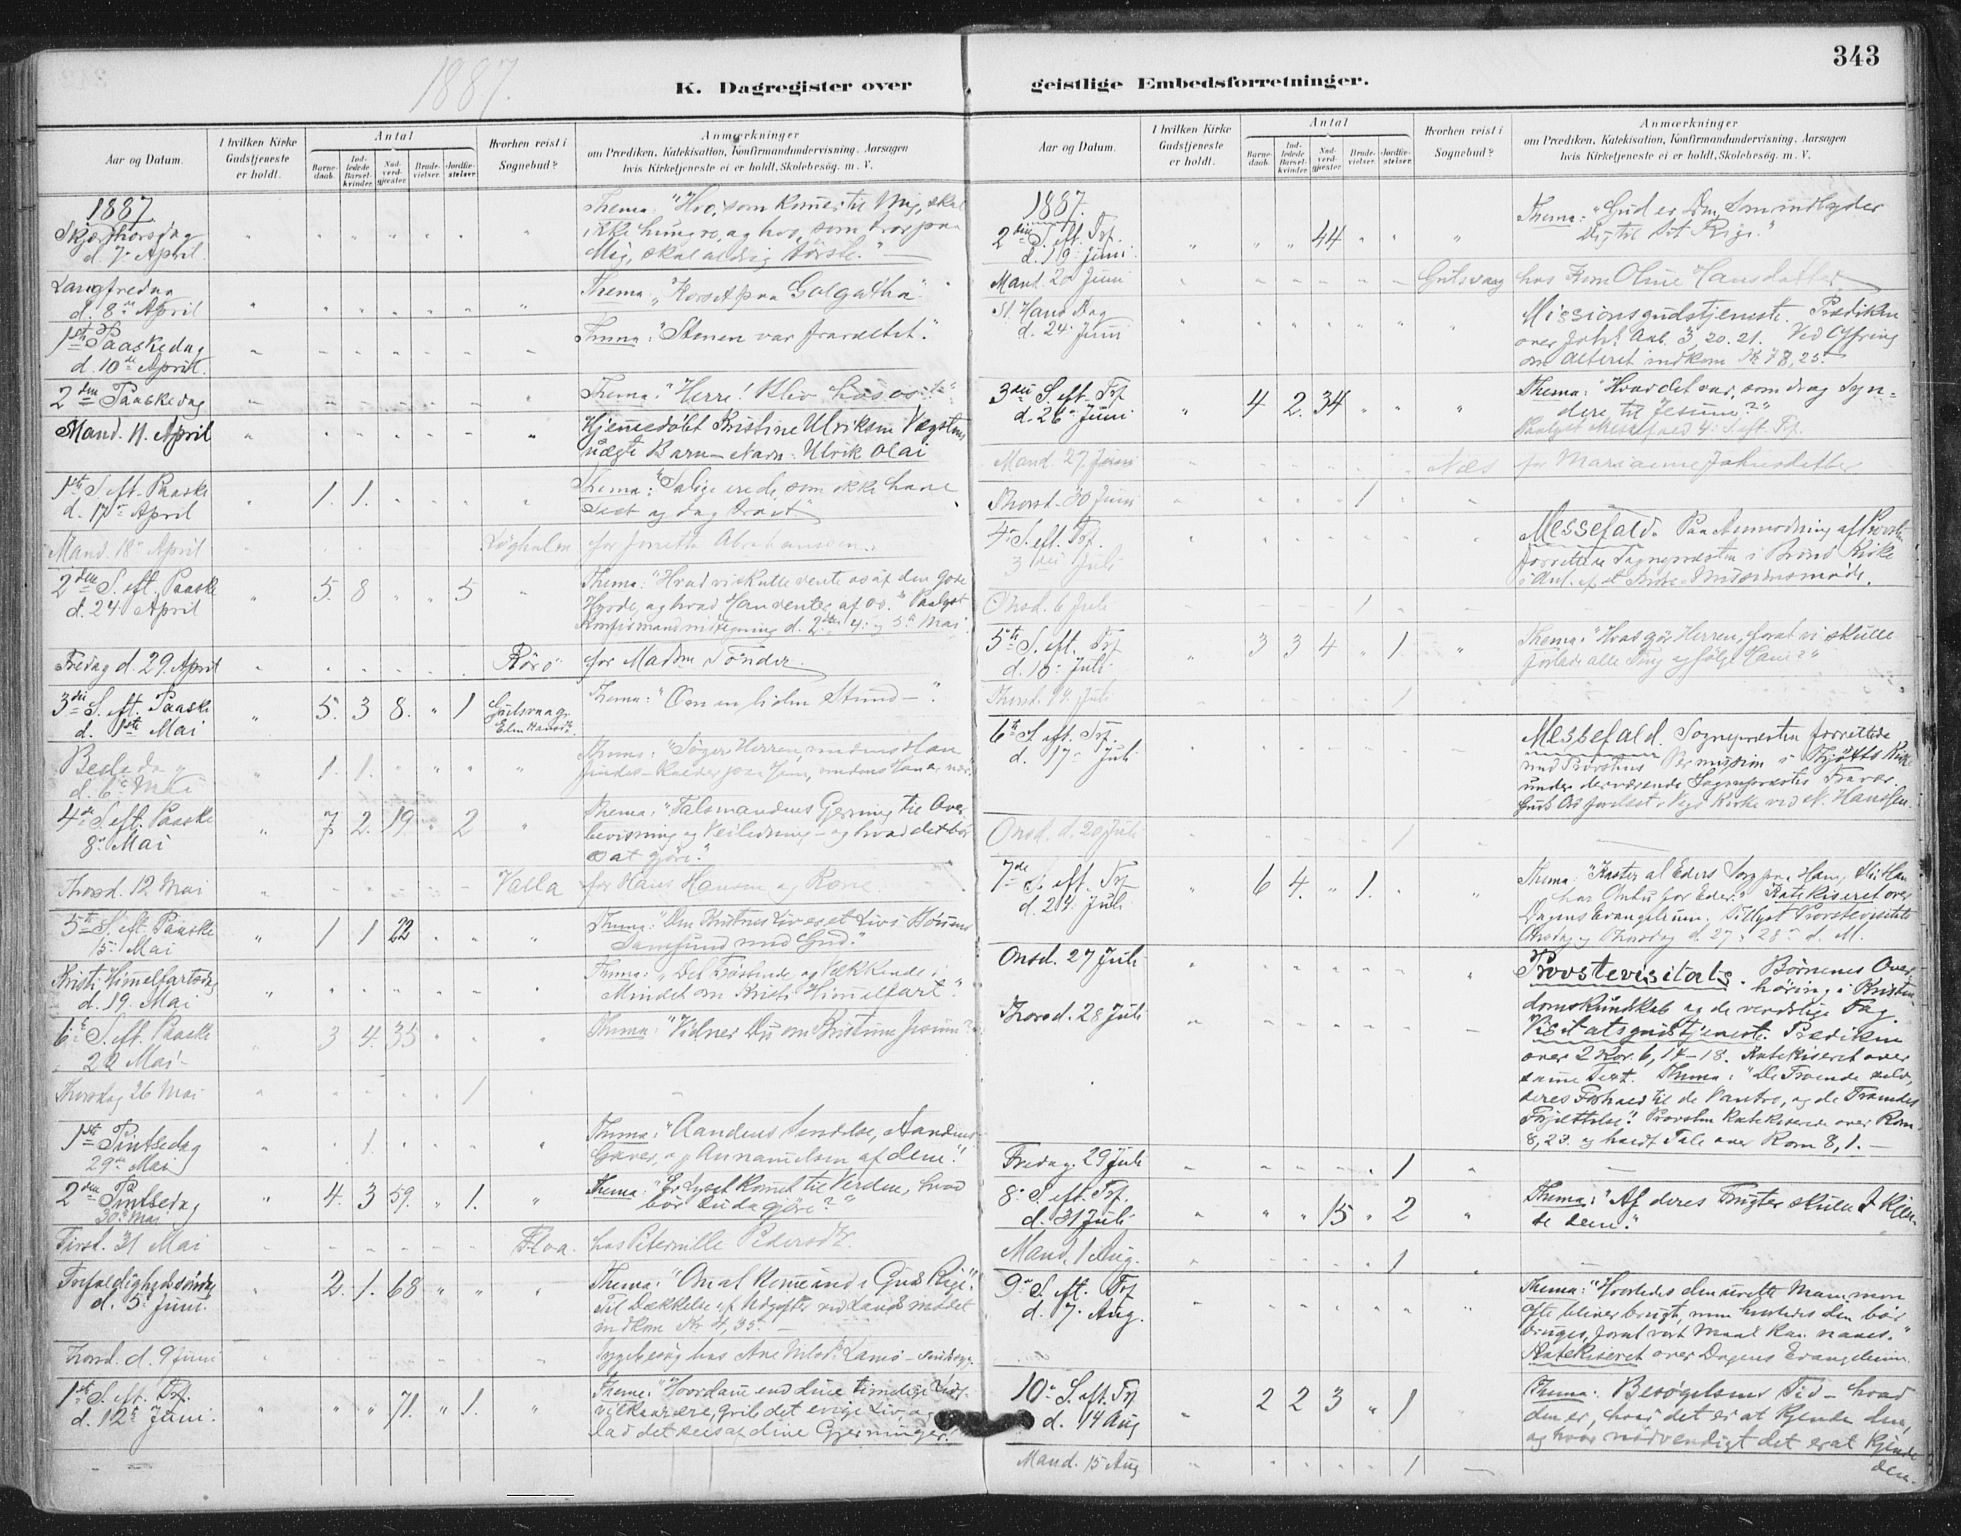 343
1887.
K. Dagregister over geistlige Embedsforretninger.
Aar og Datum.
I hvilken Kirke Gudstjeneste er holdt.
Antal
Barnedaab.
Indledede Barselkvinder.
Nadverdgjester.
Brudevielser.
Jordfæstelser.
Hvorhen reist i Sognebud?
Anmærkninger
om Prædiken, Katekisation, Konfirmandundervisning. Aarsagen
hvis Kirketjeneste ei er holdt, Skolebesøg. m. V.
1887.
Skjærthorsdag
d. 7. April.
Thema: "Hvo, som kommer til Mig, skal
ikke hungre, og hvo, som tror paa
Mig, skal aldrig tørste."
Langfredag
d. 8de April
Thema: "Korset paa Golgatha".
1ste Paaskedag
d. 10de April.
Thema: "Stenen var fravæltet."
2den Paaskedag
Thema: "Herre! bliv hos os!"
Mand. 11. April
Hjemmedøbt Kristine Ulriksen
uægte Barn - Navn: Ulrik Olai
1ste S. eft. Paaske
d. 17de April
1. 1.
Thema: "Salige ere de, som ikke have
seet og dog troet"
Mand. 18de April
for Abrahamsen.
2den S. eft. Paaske
d. 24 April
5. 8 5
Thema: "Hvad vi skulle vente os af den gode
Hyrde, og hvad Han venter af os." Paalyst
d. 2den, 4. og 5te Mai.
Fredag d. 29 April
Rørø
for Madm Tønder.
3die S. eft. Paaske
d. 1ste Mai
5. 3 8. 1
Gulsvaag
Thema: "Om en liden Stund - "
Bededag
d. 6te Mai
1. 1.
Thema: "Søger Herren, medens Han
findes - kalder paa Ham, medens Han er nær."
4de S. eft. Paaske
8de Mai
7. 2. 19. 2
Thema: "Talsmandens Gjerning til Over-
bevisning og Veiledning - og hvad det bør
os at gjøre."
Thorsd. 12 Mai
Valla
for Hans Hansen og Kone.
5te S. eft. Paaske
15. Mai
1 1 22
Thema: "Den Kristnes Liv er et Liv i Bønnens
Samfund med Gud."
Kristi Himmelfartsdag
d. 19. Mai
Thema: "Det Trøstende og Vækkende i
Mindet om Kristi Himmelfart".
6te S. eft. Paaske
22 Mai
3 4. 35
Thema: "Vidner Du om Kristum Jesum?"
Thorsdag 26 Mai
1
1ste Pintsedag
29de Mai
1.
Thema: "Aandens Sendelse, Aandens
Gaver, og Annammelsen af dem."
2den Pintsedag
30te Mai
4. 3 59. 1.
Thema: "Er Lyset kommet til Verden, hvad
bør Du da gjøre?"
Tirsd. 31 Mai
Floa.
hos Peternille Pedersdtr.
Trefoldighedssøndag
d. 5te Juni.
2. 1. 68
Thema: "Om at komme ind i Guds Rige".
Til Dækkelse af Udgifter ved Landsmødet
indkom Kr 4,35.
Thorsd. d. 9 Juni
Sygebesøg hos Ane
1ste S. eft. Trf.
d. 12te Juni.
71. 1.
Thema: "Hvordan end dine timelige Livs-
vilkaar ere, grib det evige Liv og
lad det sees af dine Gjerninger!
Aar og Datum.
I hvilken Kirke Gudstjeneste er holdt.
Antal
Barnedaab.
Indledede Barselkvinder.
Nadverdgjester.
Brudevielser.
Jordfæstelser.
Hvorhen reist i Sognebud?
Anmærkninger
om Prædiken, Katekisation, Konfirmandundervisning. Aarsagen
hvis Kirketjeneste ei er holdt, Skolebesøg. m. V.
1887.
2den S. eft. Trf.
d. 19. Juni.
44
Thema: "Gud er Den, Som indbyder
Dig til Sit Rige."
Mand. 20 Juni
Gulsvaag
hos Fru Oline Hansdatter.
St. Hans Dag
d. 24. Juni
Missionsgudstjeneste. Prædiken
over Joh. Aab. 3, 20. 21. Ved Ofring
om Alteret indkom Kr 78,25.
3die S. eft. Trf
d. 26. Juni.
4 2. 34
Thema: "Hvad det var, som drog Syn-
dere til Jesum?"
Paalyst Messefald 4. S. eft. Trf.
Mand. 27 Juni
Næs
for Marianne Johnsdatter
Thorsd. 30 Juni
1
4de S. eft. Trf.
3die Juli
Messefald. Paa Anmodning af Provsten
forrettede Sognepræsten i Brønø Kirke
Onsd. 6 Juli
1
5te S. eft. Trf
d. 10. Juli
3 3 4 1
Thema: "Hvad gjør Herren, forat vi skulle
forlade alle Ting og følge Ham?"
Thorsd. 14. Juli
1
6te S. eft. Trf.
d. 17. Juli
Messefald. Sognepræsten forrettede
med Provstens Permission i Tjøtta Kirke
under derværende Sognepræstes Fravær.
Guds Ord forelæst i Vega Kirke ved N. Hansen.
Onsd. d. 20 Juli
1
7de S. eft. Trf
d. 24. Juli
6 4. 1.
Thema: "Kaster al Eders Sorg paa Ham, thi Han
har Omhu for Eder." Katekiseret over
Dagens Evangelium. Tillyst Provstevisitats
Onsdag og Thorsdag d. 27 og 28de d. M.
Onsd. 27 Juli
Thorsd. 28 Juli
Provstevisitats. Børnenes Over-
høring i Kristen-
domskundskab og de verdslige Fag.
Visitatsgudstjeneste. Prædiken
over 2 Kor. 6, 14-18. Katekiseret over
samme Text. Thema: "De Troende selv,
deres Forhold til de Vantro, og de Troendes
Forjættelse". Provsten katekiserede over Rom
8, 23. og holdt Tale over Rom 8, 1. -
Fredag. 29 Juli
1
8de S. eft. Trf.
d. 31 Juli
15 2
Thema: "Af deres Frugter skulle I kjen-
de dem."
Mand. 1 Aug.
1
9de S. eft. Trf
d. 7. Aug.
Thema: "Hvorledes den urette Mammon
ofte bliver brugt, men hvorledes den bør
bruges, forat vort Maal kan naaes."
Katekiseret over Dagens Evangelium.
10de S. eft. Trf
d. 14 Aug
2 2 3 1
Thema: Besøgelsens Tid - hvad
den er, hvor det er at kjende den,
og hvor nødvendigt det er at kjende
den.
Mand. 15 Aug
1